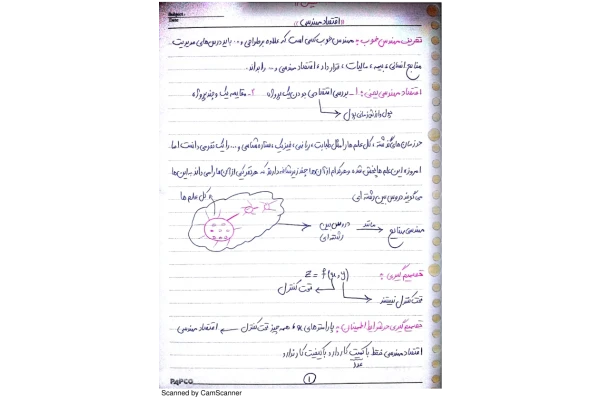 Subject:
Date
«اقتصاد مهندسی»
تعریف مهندس خوب: مهندس خوب کسی است که علاوه بر طراحی و ... باید درس‌های مدیریت
منابع انسانی، بیمه، مالیات، قرارداد، اقتصاد مهندسی و ... را بداند.
اقتصاد مهندسی یعنی: ۱- بررسی اقتصادی بودن یک پروژه ۲- مقایسه یک و چند پروژه
پول و ارزش زمانی پول
در زمان‌های گذشته، کل علم‌ها را مثل طبابت، ریاضی، فیزیک، ستاره‌شناسی و ... را یک نفر می‌دانست اما
امروزه این علم‌ها پخش شده و هرکدام از آن‌ها چند زیرشاخه دارند که هر نفر یکی از آن‌ها را می‌داند به این‌ها
می‌گویند دروس بین رشته‌ای
کل علم ها
دروس بین رشته‌ای
مانند
مهندسی صنایع
تصمیم گیری:
z = f(x, y)
تحت کنترل
تحت کنترل نیستند
تصمیم گیری در شرایط اطمینان: پارامترهای x و همه چیز تحت کنترل ← اقتصاد مهندسی
اقتصاد مهندسی فقط با کمیت کار دارد با کیفیت کار ندارد
عدد
PAPCO
1
Scanned by CamScanner